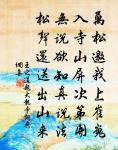 萬松邀我上崔嵬
入寺山屏次第開
無說欲知真說法
松聲還送出山來